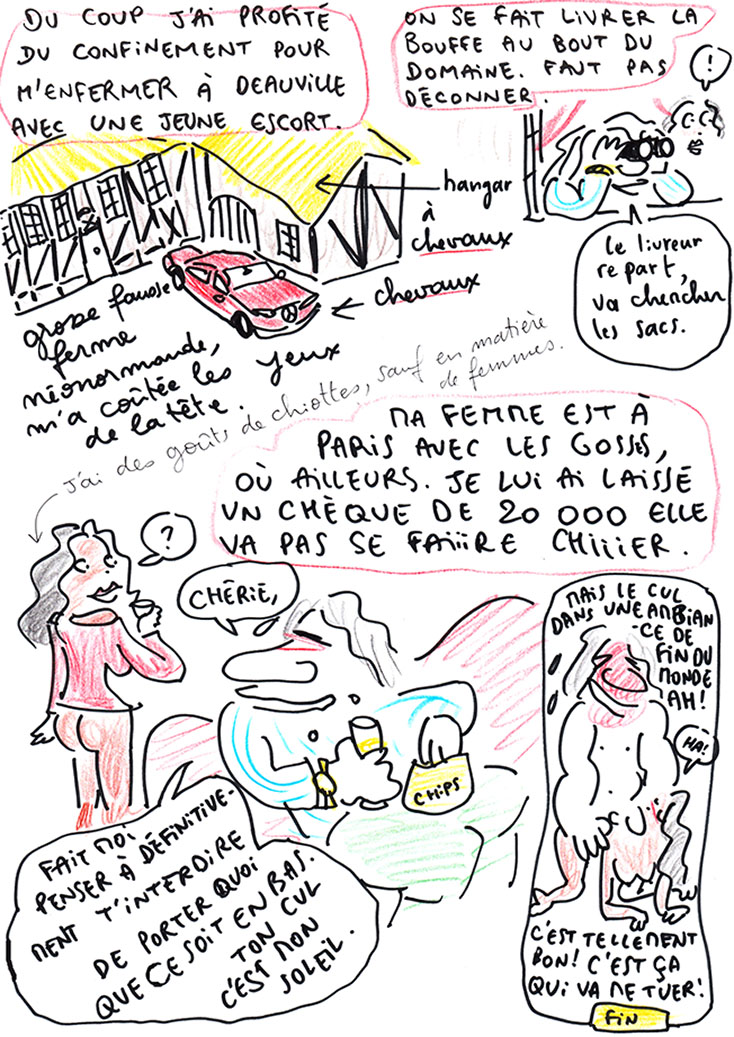 DU COUP J'AI PROFITÉ
DU CONFINEMENT POUR
M'ENFERMER À DEAUVILLE
AVEC UNE JEUNE ESCORT.
ON SE FAIT LIVRER LA
BOUFFE AU BOUT DU
DOMAINE. FAUT PAS
DÉCONNER.
!
hangar
à
chevaux
chevaux
le livreur
repart,
va chercher
les sacs.
grosse fausse
ferme
néonormande,
m'a coûtée les yeux
de la tête.
J'ai des goûts de chiottes, sauf en matière
de femmes.
MA FEMME EST À
PARIS AVEC LES GOSSES,
OÙ AILLEURS. JE LUI AI LAISSÉ
UN CHÈQUE DE 20 000 ELLE
VA PAS SE FAIIIRE CHIIIER.
?
CHÉRIE,
CHIPS
FAIT MOI
PENSER À DÉFINITIVE-
MENT T'INTERDIRE
DE PORTER QUOI
QUE CE SOIT EN BAS.
TON CUL
C'EST MON
SOLEIL.
MAIS LE CUL
DANS UNE AMBIAN
CE DE
FIN DU
MONDE
AH!
HA!
C'EST TELLEMENT
BON! C'EST ÇA
QUI VA ME TUER!
FIN